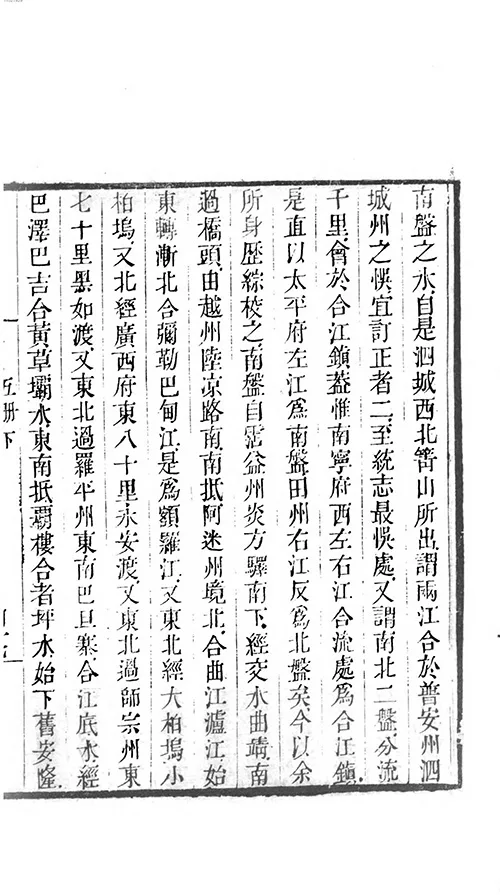 南盤之水自是泗城西北箐山所出謂兩江合於普安州泗
城州之悞宜訂正者二至統志最悞處又謂南北二盤分流
千里會於合江鎮蓋惟南寧府西左右江合流處爲合江鎮
是直以太平府左江爲南盤田州右江反爲北盤矣今以余
所身歷綜校之南盤自霑益州炎方驛南下經交水曲靖南
過橋頭由越州陸凉路南南抵阿迷州境北合曲江瀘江始
東轉漸北合彌勒巴甸江是爲額羅江又東北經大柏塢小
柏塢又北經廣西府東八十里永安渡又東北過師宗州東
七十里黑如渡又東北過羅平州東南巴旦寨合江底水經
巴澤巴吉合黃草壩水東南抵霸樓合者坪水始下舊安隆
五册下